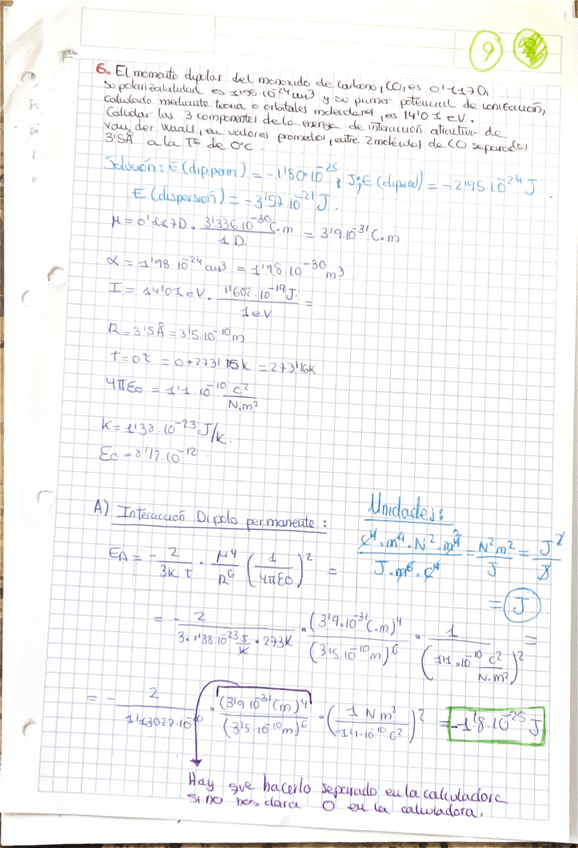 9
6. El momento dipolar del monoxido de carbono, CO, es 0'117D,
su polarizabilidad es 1'98·10⁻²⁴cm³ y su primer potencial de ionización,
calculado mediante teoria o orbitales moleculares, es 14'01 eV.
Calcular las 3 componentes de la energía de interacción atractiva de
van der Waals, en valores promedios, entre 2 moléculas de CO separadas
3'5Å a la Tª de 0ºC.
Solución: E(dip.perm) = -1'80·10⁻²⁵ J; E(dip ind) = -2'95·10⁻²⁴ J
E(dispersión) = -3'57·10⁻²¹ J.
μ = 0'117D · 3'336·10⁻³⁰C·m / 1D. = 3'9·10⁻³¹ C·m
α = 1'98·10⁻²⁴cm³ = 1'98·10⁻³⁰ m³
I = 14'01eV · 1'602·10⁻¹⁹J / 1eV =
R = 3'5Å = 3'5·10⁻¹⁰m
T = 0ºC = 0+273'15K = 273'16K
4πε0 = 1'1·10⁻¹⁰ C² / N·m²
K = 1'38·10⁻²³ J/K.
A) Interacción Dipolo permanente:
Unidades:
C⁴·m⁴·N²·m⁴ / J·m⁶·C⁴ = N²m² / J = J² / J
= J
EA = - 2 / 3KT · μ⁴ / R⁶ (1 / 4πε0)² =
= - 2 / 3·1'38·10⁻²³ J/K · 273K · (3'9·10⁻³¹C·m)⁴ / (3'5·10⁻¹⁰m)⁶ · 1 / (1'1·10⁻¹⁰ C² / N·m²)² =
= - 2 · (3'9·10⁻³¹Cm)⁴ / (3'5·10⁻¹⁰m)⁶ · (1 Nm² / 1'1·10⁻¹⁰C²)² = -1'8·10⁻²⁵ J
Hay que hacerlo separado en la calculadora
si no nos dara 0 en la calculadora.